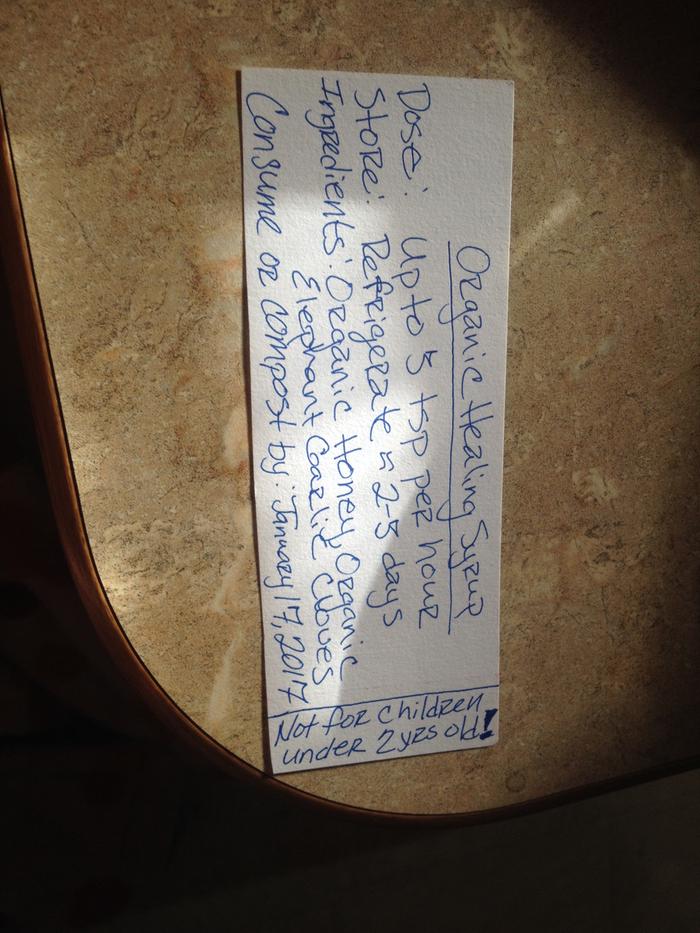 Organic Healing Syrup
Dose: Up to 5 tsp per hour
Store: Refrigerate ≤ 2-5 days
Ingredients: Organic Honey, Organic
Elephant Garlic Cloves
Consume or compost by: January 17, 2017
Not for children
under 2yrs old!